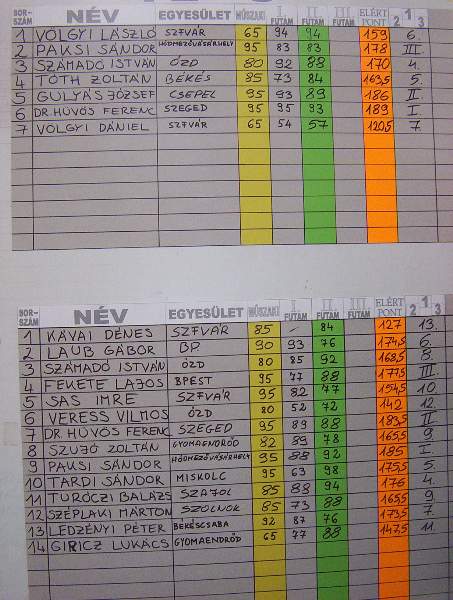 SOR-SZÁM NÉV EGYESÜLET MŰSZAKI I. FUTAM II. FUTAM III. FUTAM ELÉRT PONT 2 1 3
1 VÖLGYI LÁSZLÓ SZFVÁR 65 94 94 159 6.
2 PAKSI SÁNDOR HÓDMEZŐVÁSÁRHELY 95 83 83 178 III.
3 SZAMADÓ ISTVÁN ÓZD 80 92 88 170 4.
4 TÓTH ZOLTÁN BÉKÉS 85 73 84 163,5 5.
5 GULYÁS JÓZSEF CSEPEL 95 93 89 186 II.
6 DR HÜVÖS FERENC SZEGED 95 95 93 189 I.
7 VÖLGYI DÁNIEL SZFVÁR 65 54 57 120,5 7
SOR-SZÁM NÉV EGYESÜLET MŰSZAKI I. FUTAM II. FUTAM III. FUTAM ELÉRT PONT 2 1 3
1 KÁVAI DÉNES SZFVÁR 85 - 84 127 13.
2 LAUB GÁBOR BP. 90 93 76 174,5 6.
3 SZÁMADÓ ISTVÁN ÓZD 80 85 92 168,5 8.
4 FEKETE LAJOS BPEST 95 77 88 177,5 III.
5 SAS IMRE SZFVÁR 95 82 77 154,5 10.
6 VERESS VILMOS ÓZD 80 52 72 142 12.
7 DR HÜVÖS FERENC SZEGED 95 89 88 183,5 II
8 SZUJÓ ZOLTÁN GYOMAENDRŐD 82 89 78 165,5 9.
9 PAKSI SÁNDOR HÓDMEZŐVÁSÁRHELY 95 88 92 185 I.
10 TARDI SÁNDOR MISKOLC 95 63 98 175,5 5.
11 TURÓCZI BALÁZS SZAJOL 85 88 94 176 4.
12 SZÉPLAKI MÁRTON SZOLNOK 85 73 88 165,5 9
13 LEDZÉNYI PÉTER BÉKÉSCSABA 92 87 76 173,5 7.
14 GIRICZ LUKÁCS GYOMAENDRŐD 65 77 88 147,5 11.